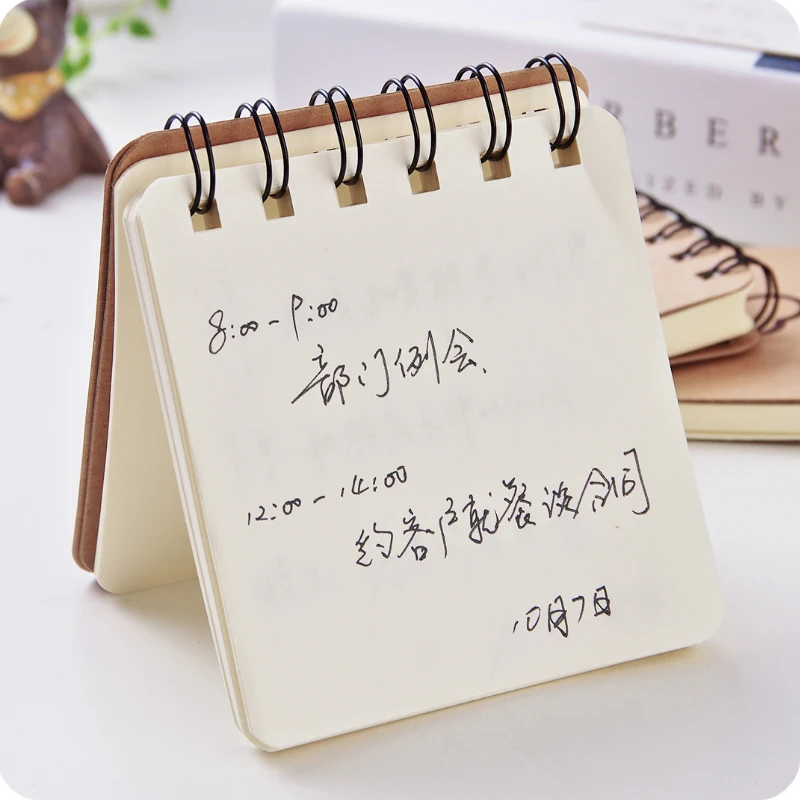 8:00-9:00
部门例会.
12:00-14:00
约客户就餐谈合同
10月7日
BER
IZED BY